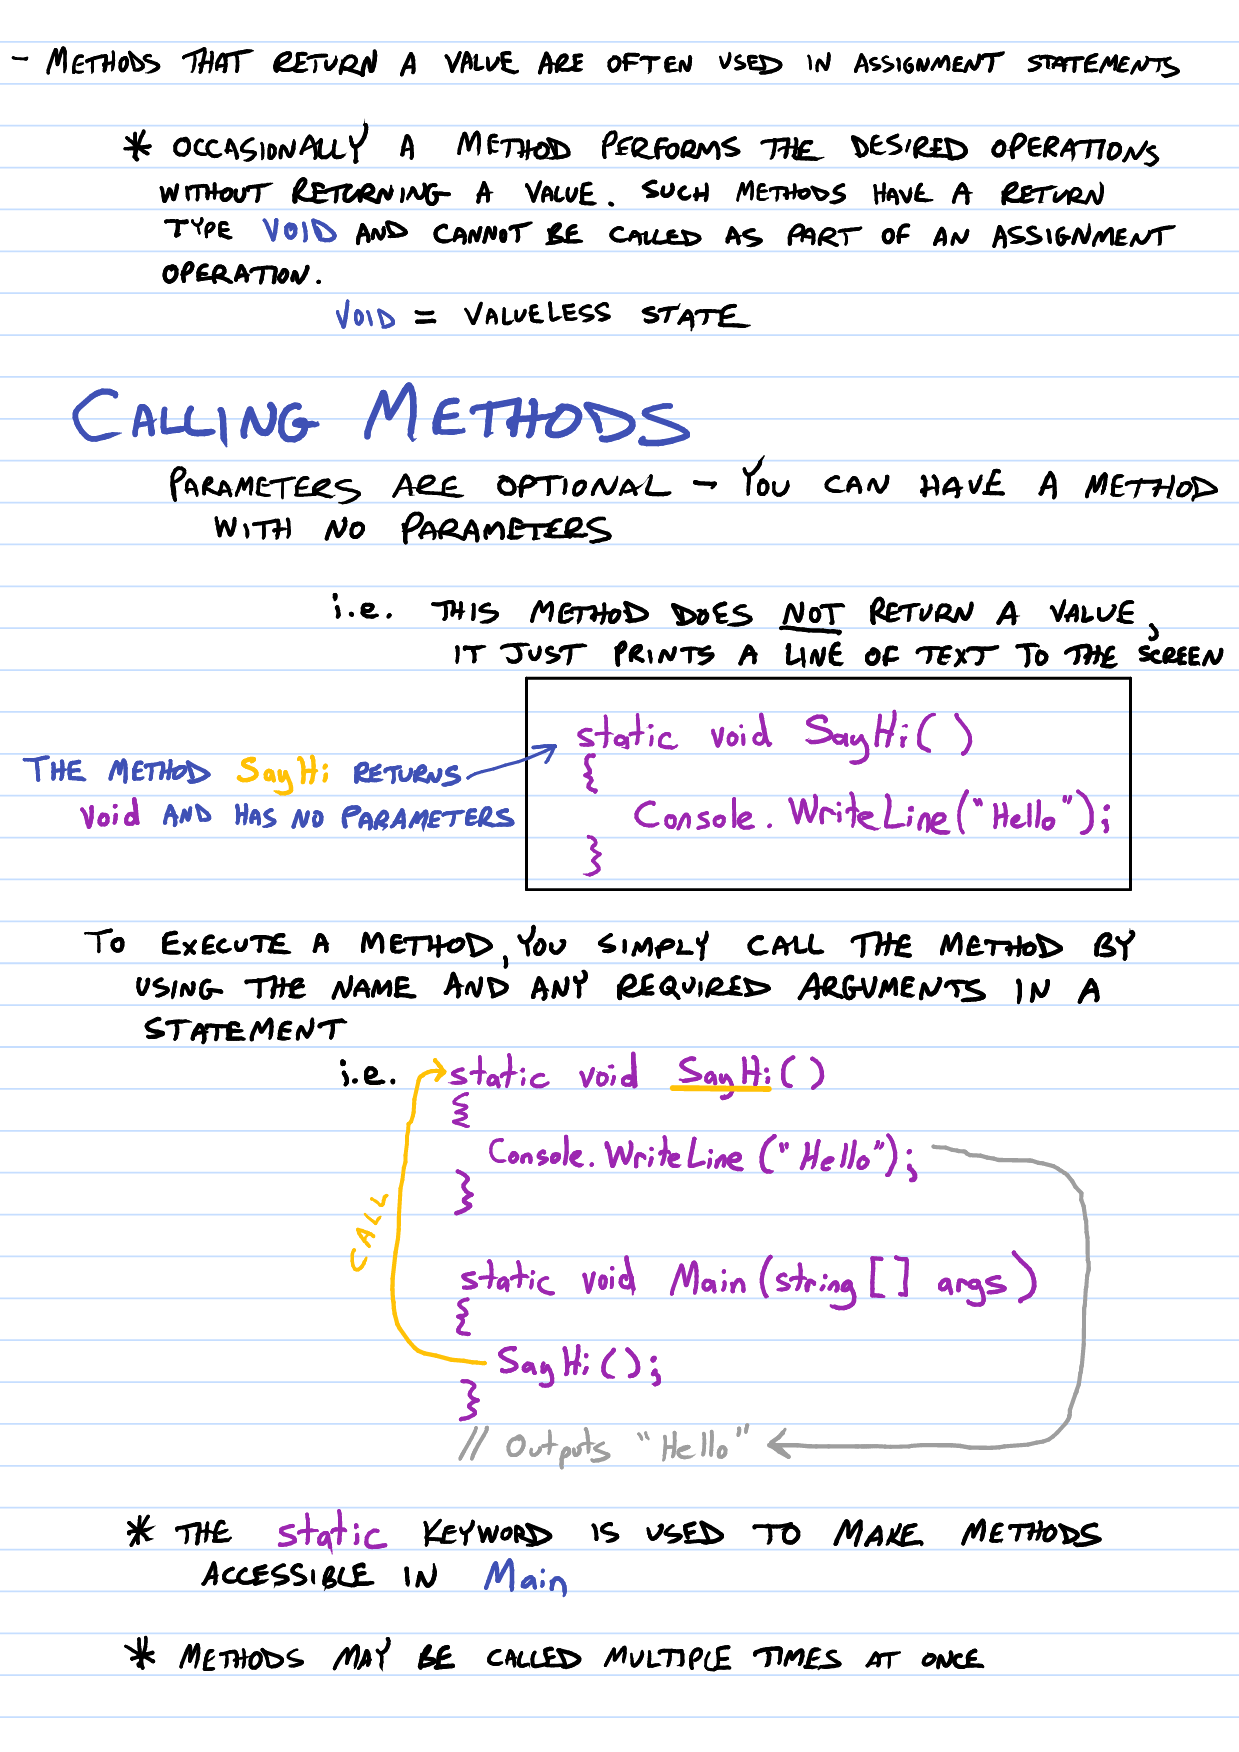 - METHODS THAT RETURN A VALUE ARE OFTEN USED IN ASSIGNMENT STATEMENTS
* OCCASIONALLY A METHOD PERFORMS THE DESIRED OPERATIONS
WITHOUT RETURNING A VALUE. SUCH METHODS HAVE A RETURN
TYPE VOID AND CANNOT BE CALLED AS PART OF AN ASSIGNMENT
OPERATION.
VOID = VALUELESS STATE
CALLING METHODS
PARAMETERS ARE OPTIONAL - YOU CAN HAVE A METHOD
WITH NO PARAMETERS
i.e. THIS METHOD DOES NOT RETURN A VALUE,
IT JUST PRINTS A LINE OF TEXT TO THE SCREEN
THE METHOD SayHi RETURNS
void AND HAS NO PARAMETERS
static void SayHi()
{
Console.WriteLine("Hello");
}
TO EXECUTE A METHOD, YOU SIMPLY CALL THE METHOD BY
USING THE NAME AND ANY REQUIRED ARGUMENTS IN A
STATEMENT
i.e. static void SayHi()
{
Console.WriteLine("Hello");
}
CALL
static void Main(string[] args)
{
SayHi();
}
// Outputs "Hello"
* THE static KEYWORD IS USED TO MAKE METHODS
ACCESSIBLE IN Main
* METHODS MAY BE CALLED MULTIPLE TIMES AT ONCE